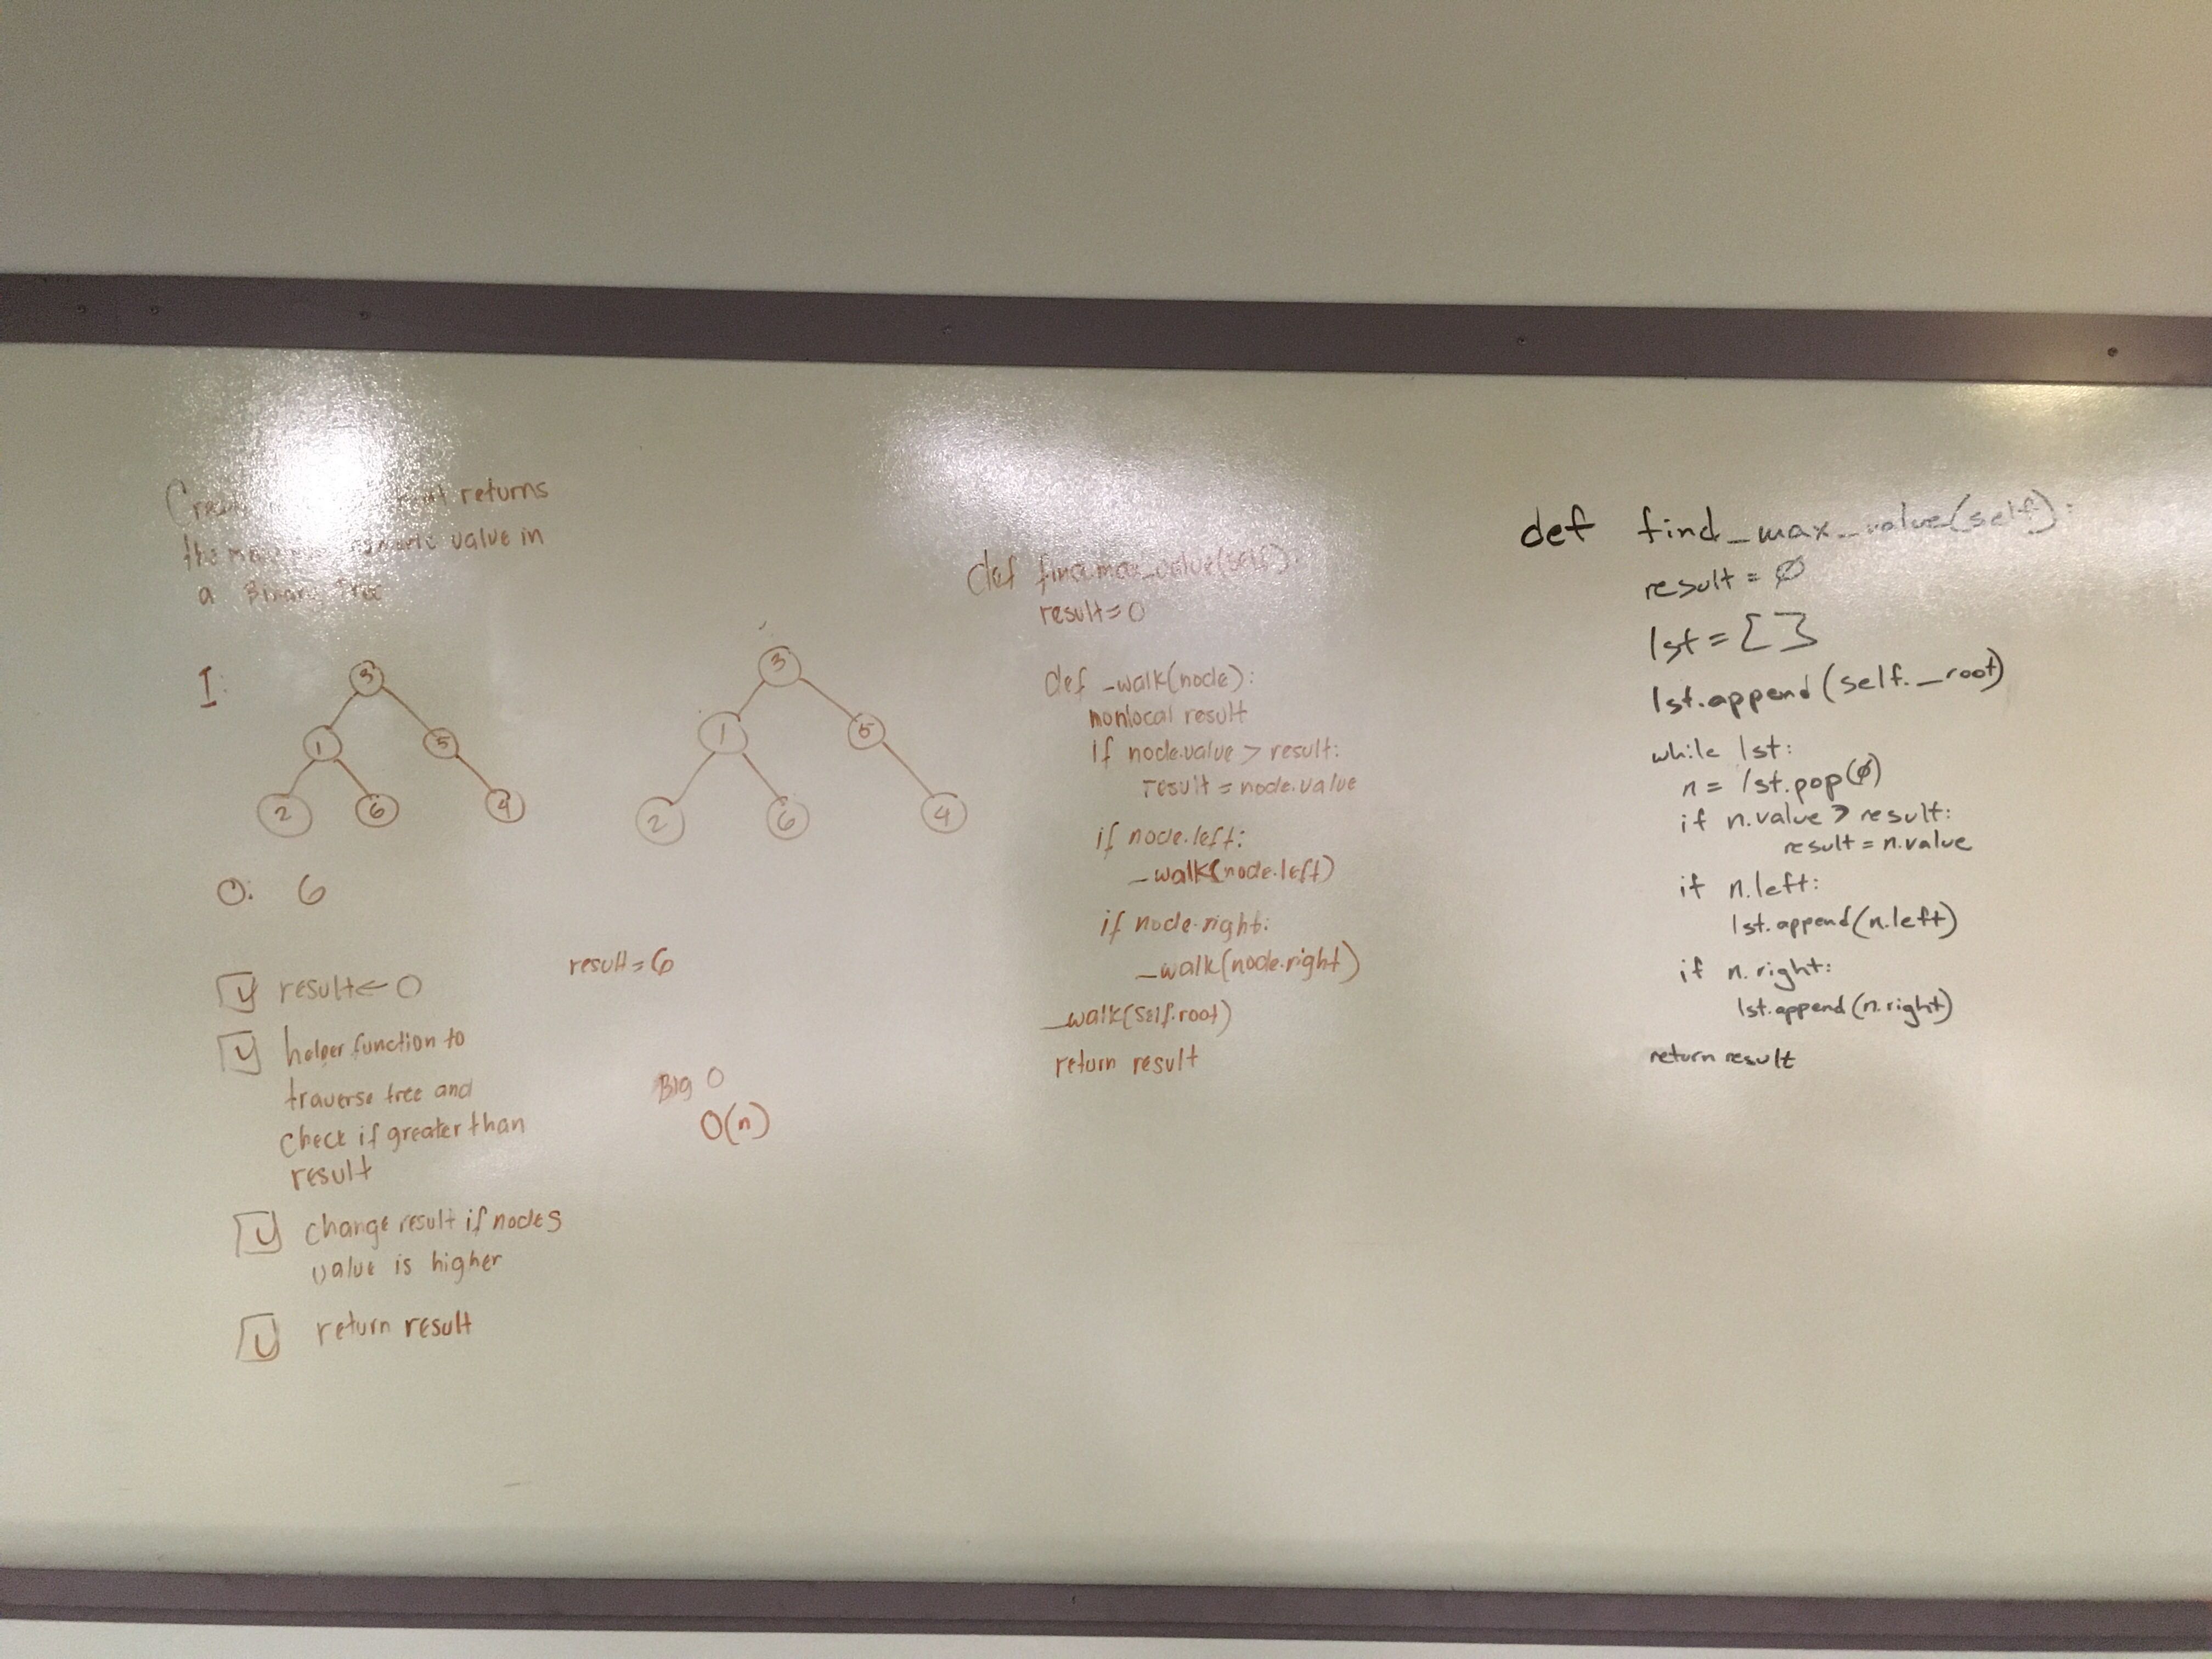 returns
the numeric value in
a Binary Tree
I:
3
1
5
2
6
4
O: 6
result ← 0
helper function to
traverse tree and
check if greater than
result
change result if nodes
value is higher
return result
3
1
5
2
6
4
result = 6
Big O
O(n)
def find_max_value(self):
result = 0
def _walk(node):
nonlocal result
if node.value > result:
result = node.value
if node.left:
_walk(node.left)
if node.right:
_walk(node.right)
_walk(self.root)
return result
def find_max_value(self):
result = Ø
lst = []
lst.append(self._root)
while lst:
n = lst.pop(Ø)
if n.value > result:
result = n.value
if n.left:
lst.append(n.left)
if n.right:
lst.append(n.right)
return result